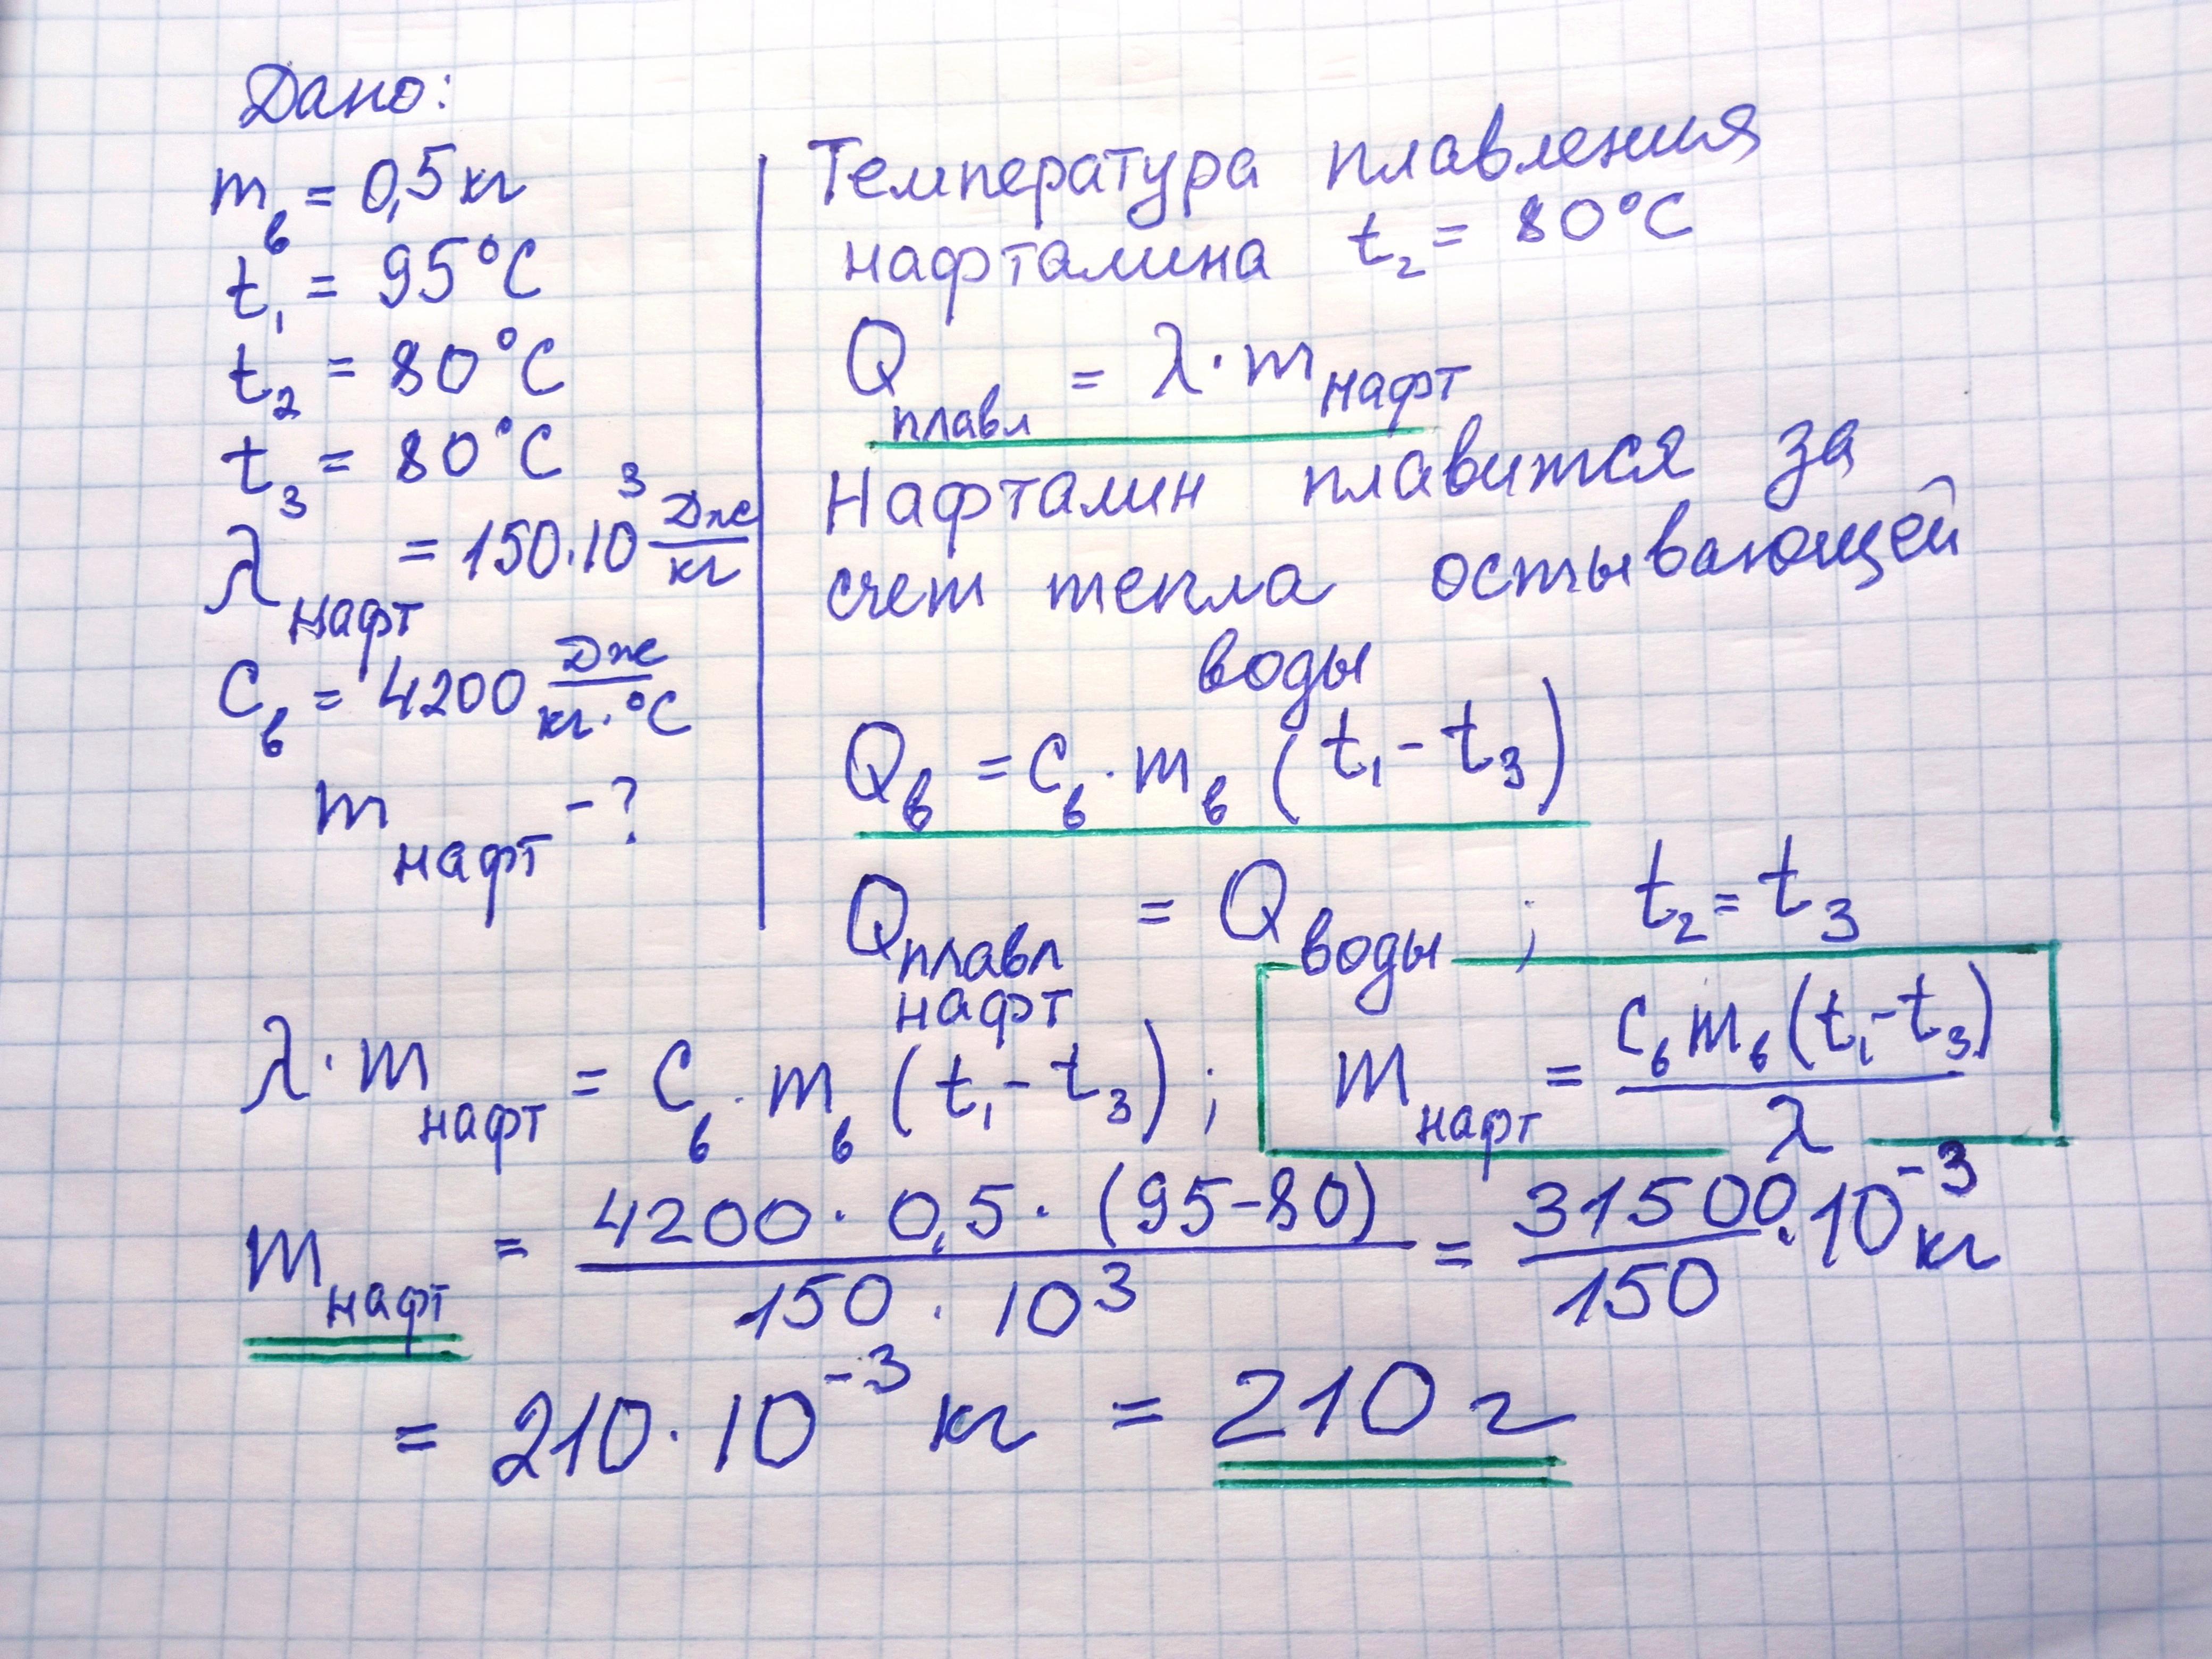 Дано:
m_в = 0,5 кг
t₁ = 95°C
t₂ = 80°C
t₃ = 80°C
λ_нафт = 150·10³ Дж/кг
C_в = 4200 Дж/(кг·°C)
m_нафт - ?
Температура плавления
нафталина t₂ = 80°C
Q_плавл = λ·m_нафт
Нафталин плавится за
счет тепла остывающей
воды
Q_в = C_в·m_в (t₁ - t₃)
Q_плавл нафт = Q_воды ; t₂ = t₃
λ·m_нафт = C_в·m_в (t₁ - t₃) ; m_нафт = C_в m_в (t₁ - t₃) / λ
m_нафт = 4200·0,5·(95-80) / 150·10³ = 31500/150 ·10⁻³ кг
= 210·10⁻³ кг = 210 г